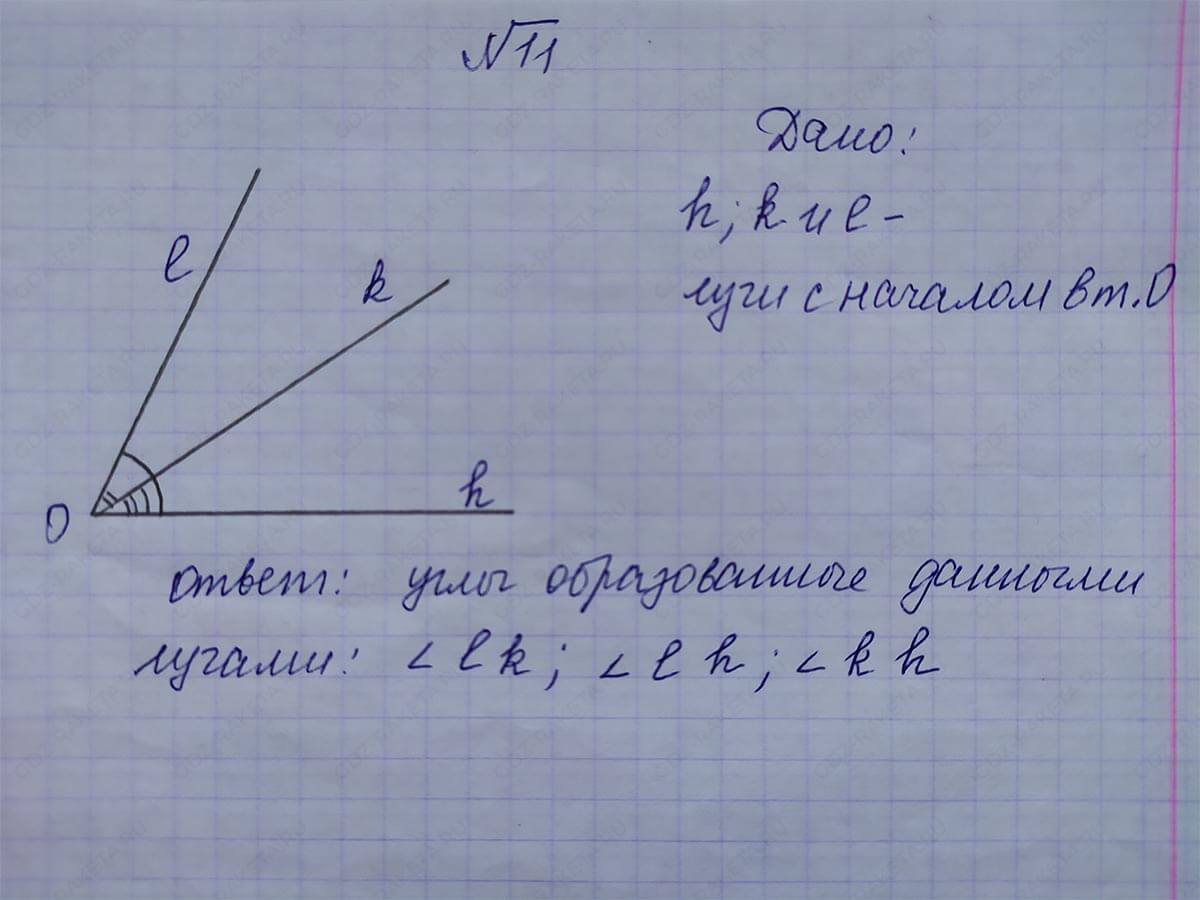 №11
Дано:
h; k и l -
лучи с началом в т. O
l
k
h
O
ответ: углы образованные данными
лучами: ∠lk; ∠lh; ∠kh